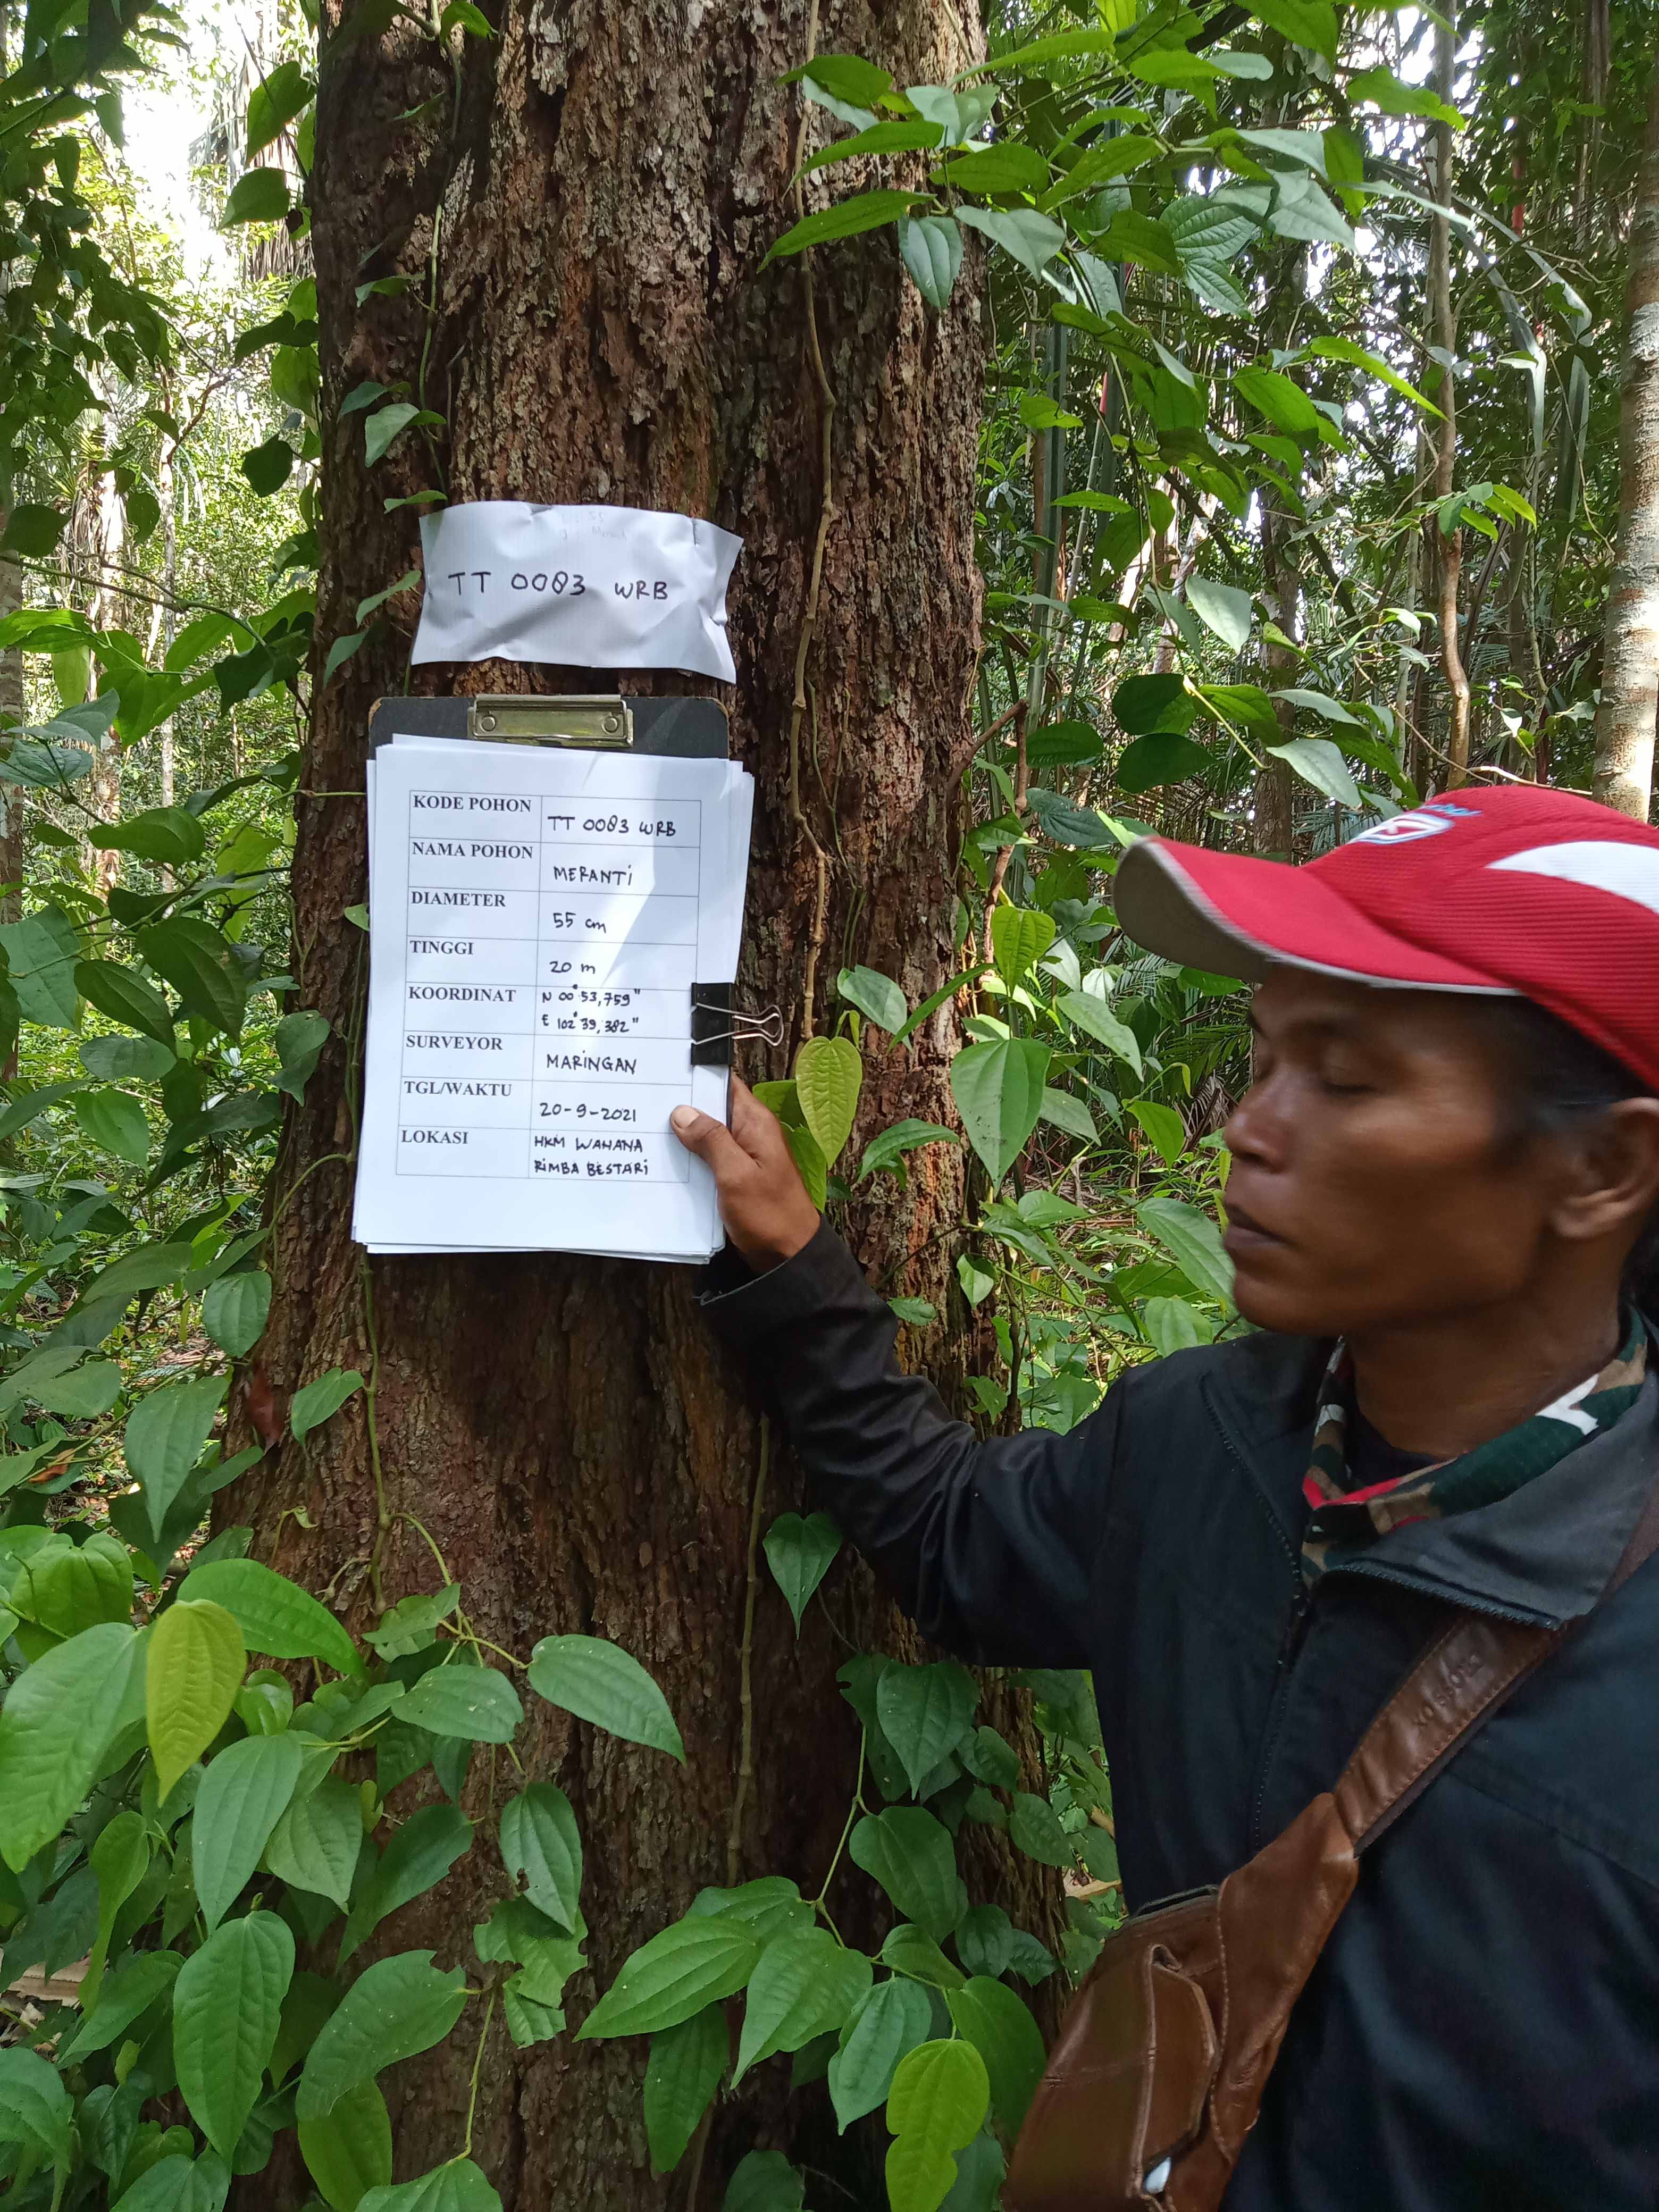 TT 0083 WRB
KODE POHON TT 0083 WRB
NAMA POHON MERANTI
DIAMETER 55 cm
TINGGI 20 m
KOORDINAT N 00° 53,759"
E 102° 39,382"
SURVEYOR MARINGAN
TGL/WAKTU 20-9-2021
LOKASI HKM WAHANA
RIMBA BESTARI